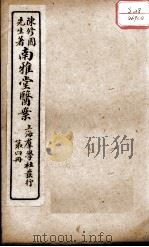 陳修園
先生著
南雅堂醫案
上海羣學社發行
第四冊